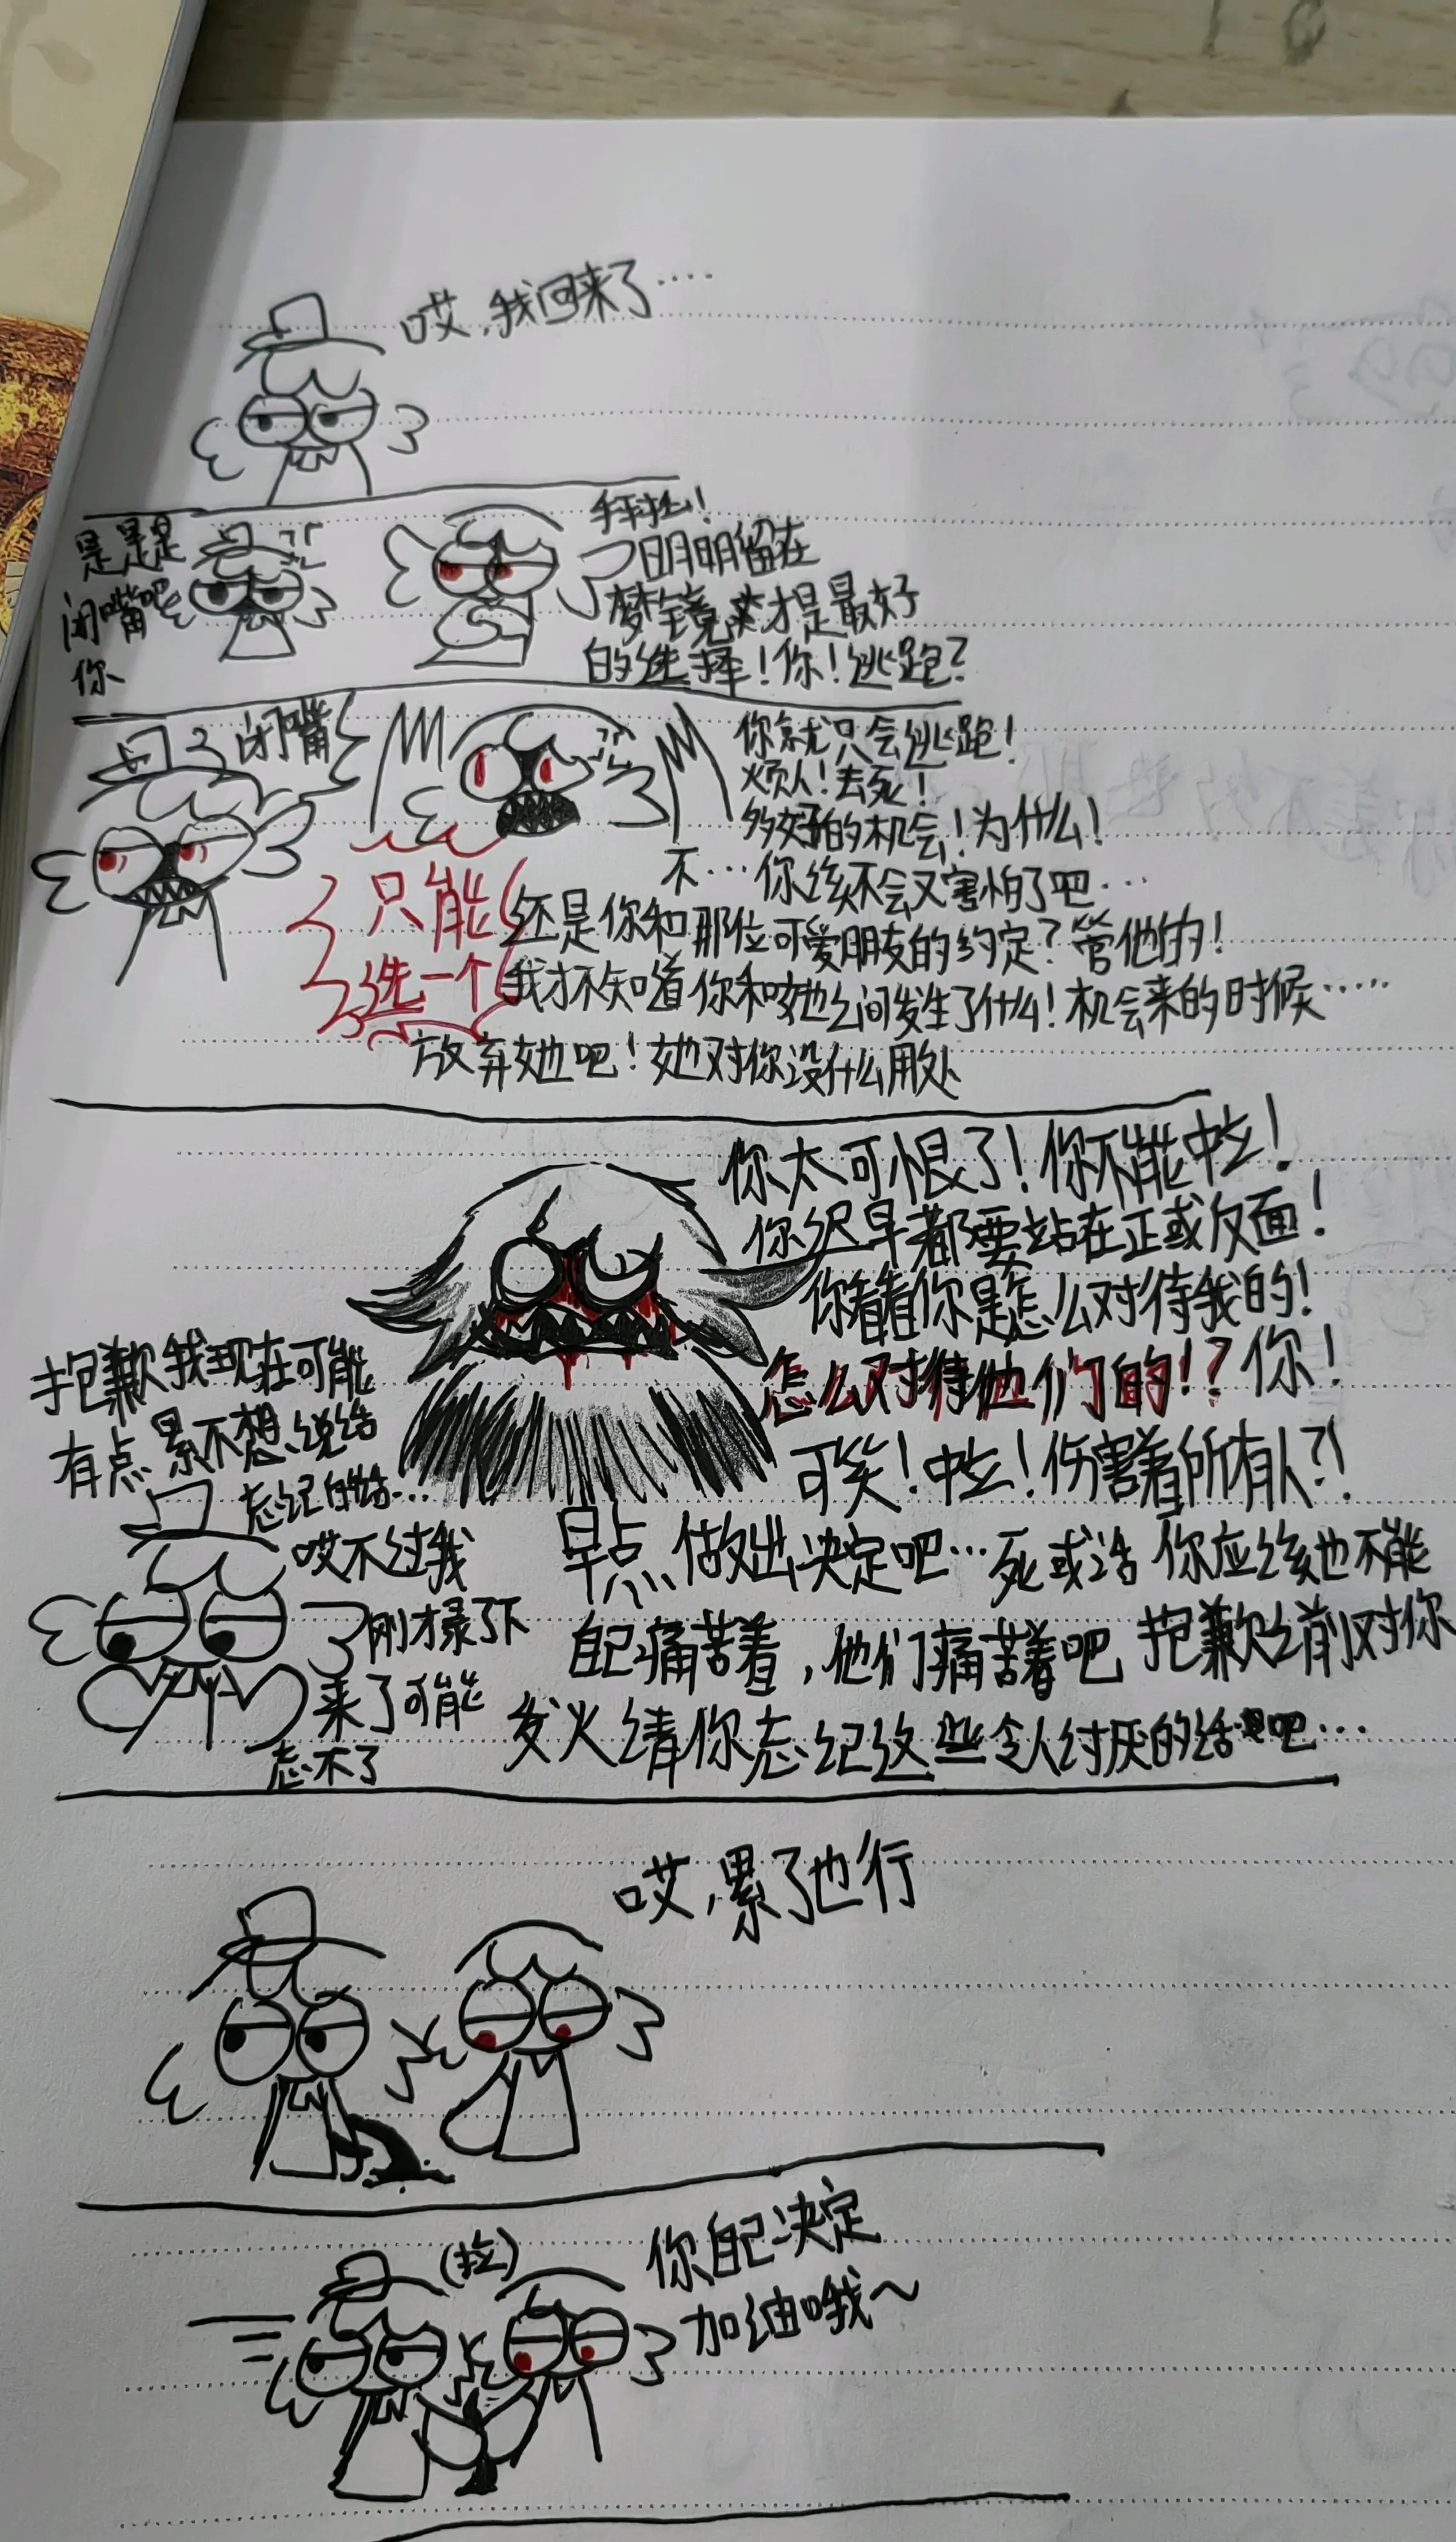 哎,我回来了····
是是是
闭嘴吧
你
拜托!
明明留在
梦镜才是最好
的选择!你!逃跑?
闭嘴
你就只会逃跑!
烦人!去死!
多好的机会!为什么!
不···你该不会又害怕了吧···
只能
选一个
还是你和那位可爱朋友的约定?管他的!
我才不知道你和她之间发生了什么!机会来的时候·····
放弃她吧!她对你没什么用处
你太可恨了!你不能中立!
你迟早都要站在正或反面!
你看看你是怎么对待我的!
怎么对待他们的!?你!
可笑!中立!伤害着所有人?!
早点做出决定吧···死或活 你应该也不能
自己痛苦着,他们痛苦着吧 抱歉之前对你
发火请你忘记这些令人讨厌的话吧···
抱歉我现在可能
有点累不想说话
忘记的话···
哎不过我
刚才录了下
来了可能
忘不了
哎,累了也行
(拉)
你自己决定
加油哦~